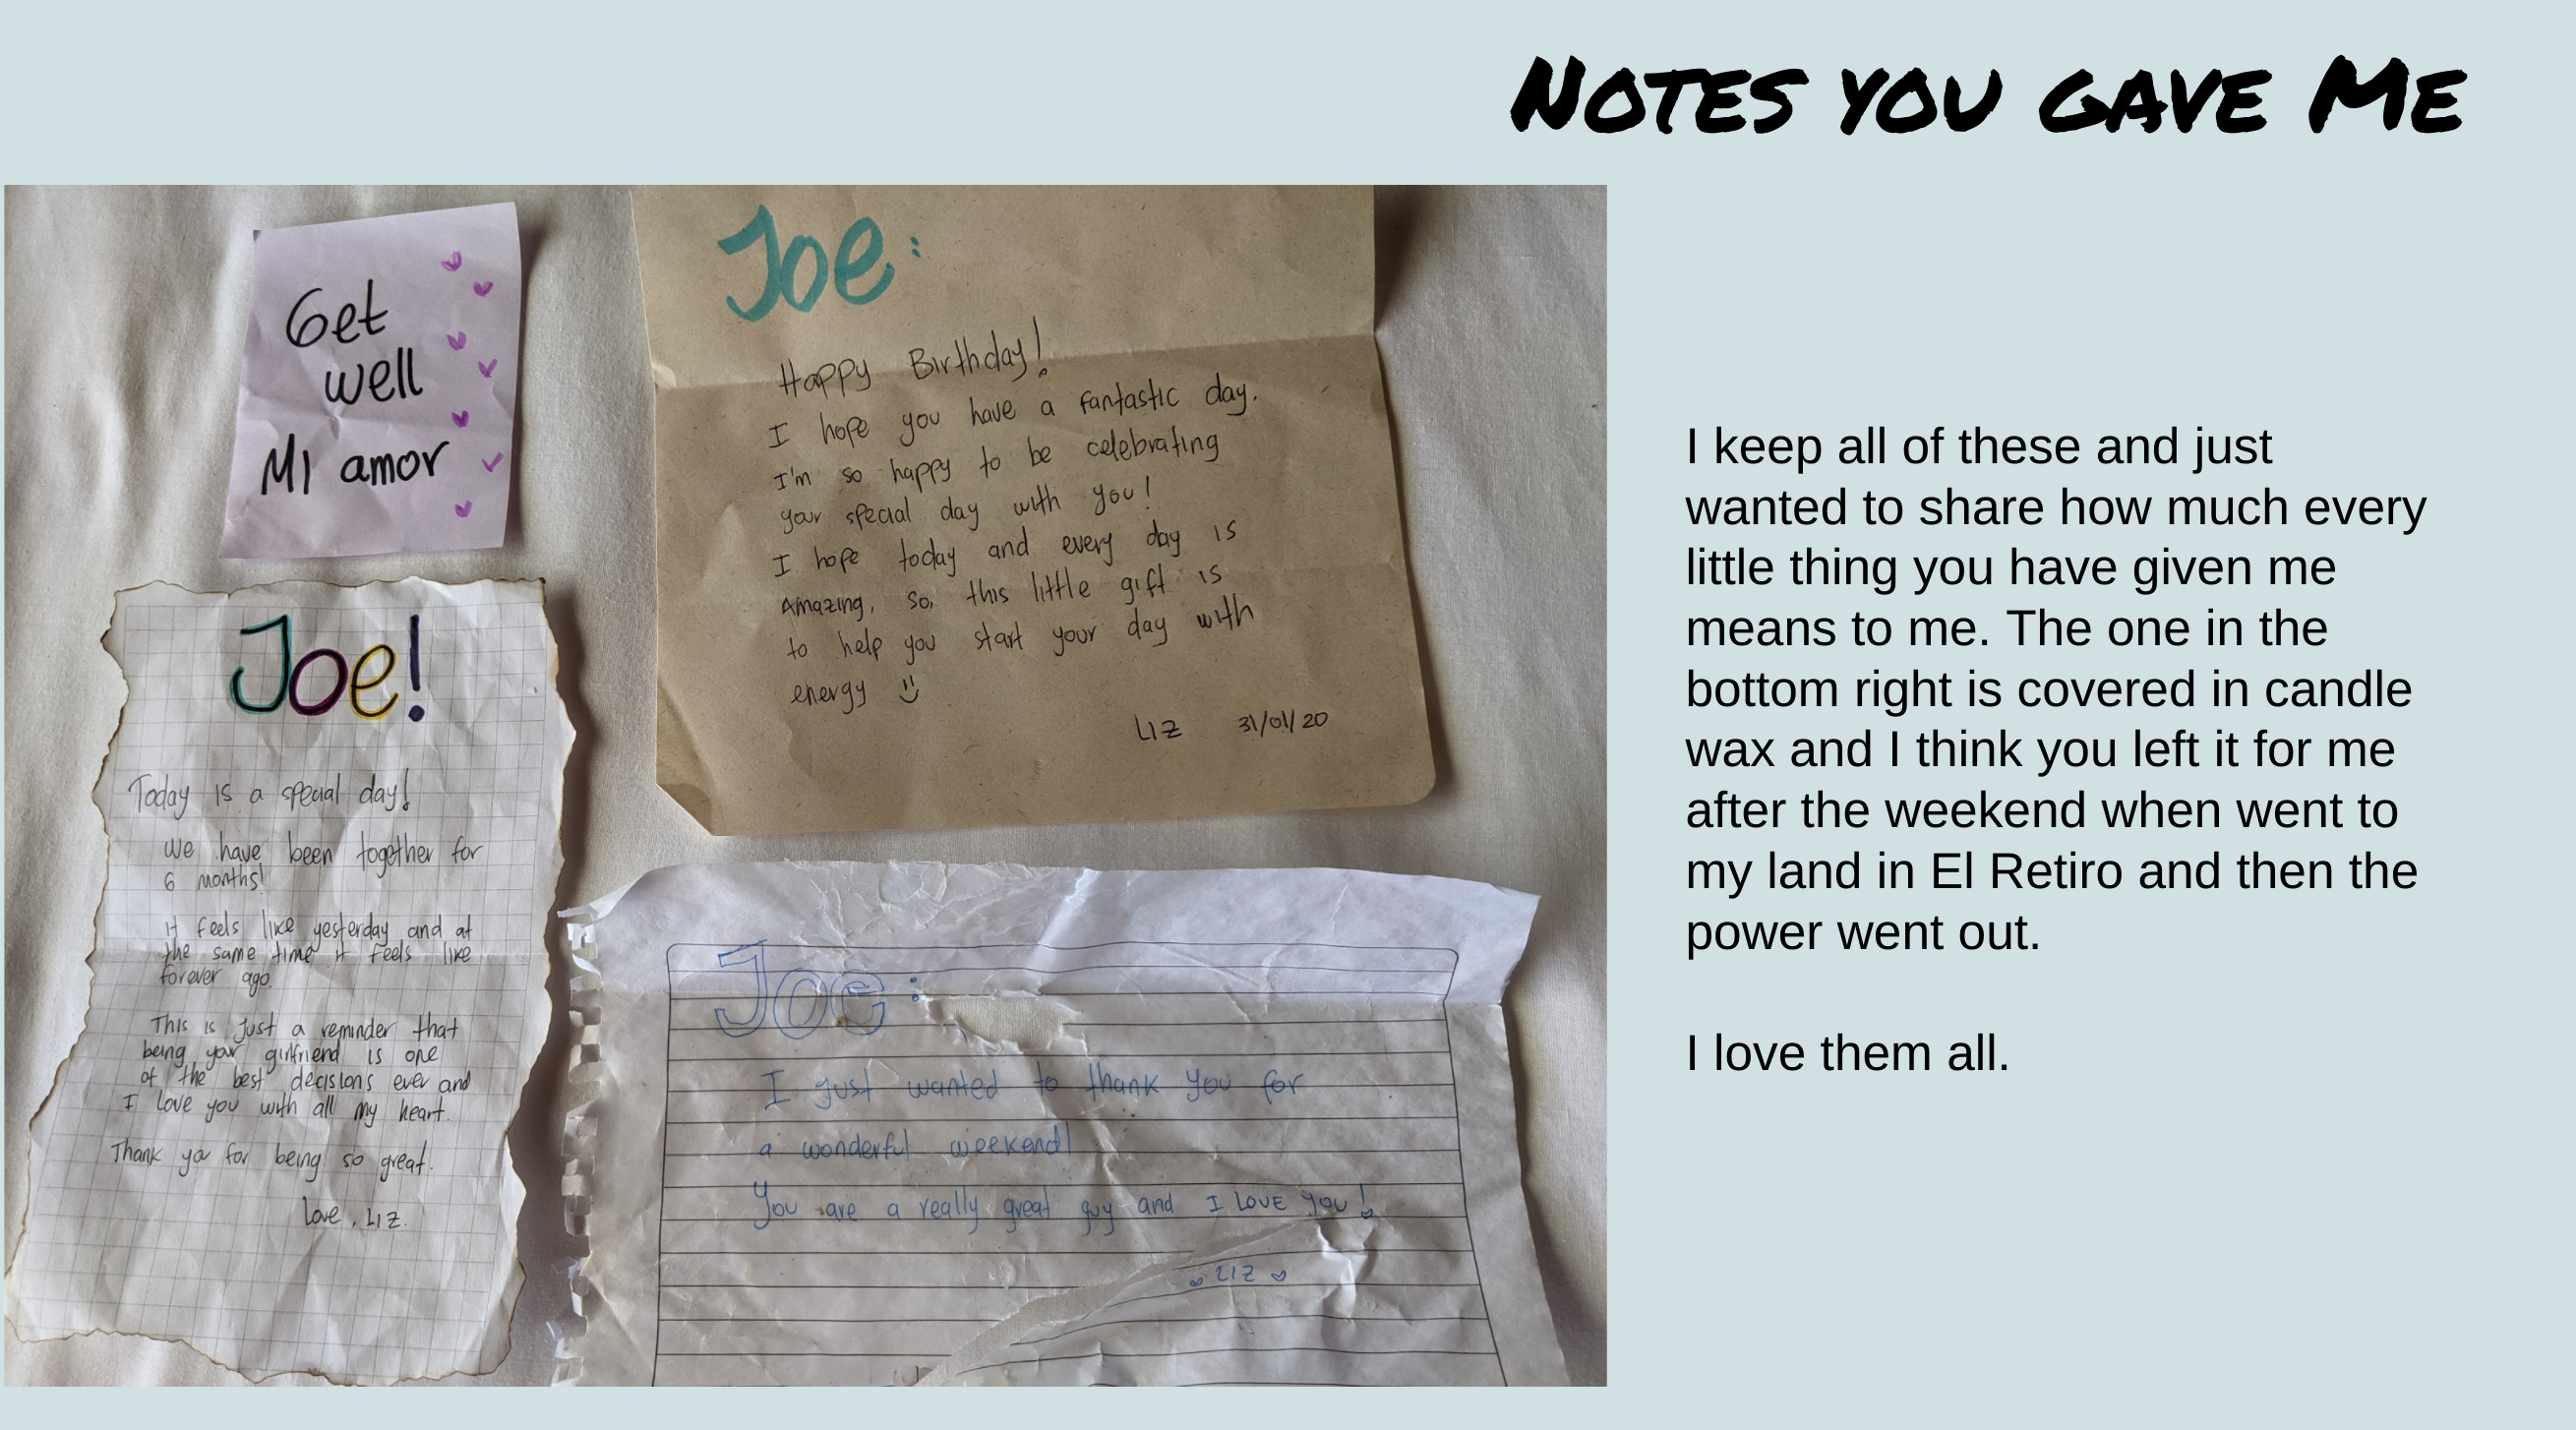 Notes you gave Me
Get
well
Mi amor
Joe:
Happy Birthday!
I hope you have a fantastic day.
I'm so happy to be celebrating
your special day with you!
I hope today and every day is
Amazing, so, this little gift is
to help you start your day with
energy
Liz 31/01/20
Joe!
Today is a special day!
We have been together for
6 months!
it feels like yesterday and at
the same time it feels like
forever ago.
This is just a reminder that
being your girlfriend is one
of the best decisions ever and
I love you with all my heart.
Thank you for being so great.
Love, Liz.
Joe:
I just wanted to thank you for
a wonderful weekend!
You are a really great guy and I LOVE you!
LIZ
I keep all of these and just
wanted to share how much every
little thing you have given me
means to me. The one in the
bottom right is covered in candle
wax and I think you left it for me
after the weekend when went to
my land in El Retiro and then the
power went out.
I love them all.